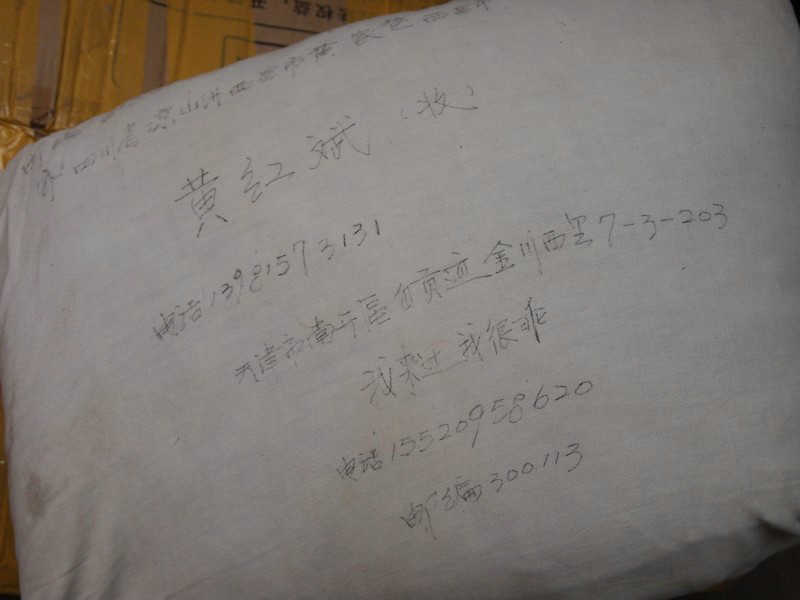 四川省凉山州西昌市黄
黄红斌（收）
电话13981573131
天津市南开區 金川西里7-3-203
我来过 我很乖
电话15520958620
邮编300113